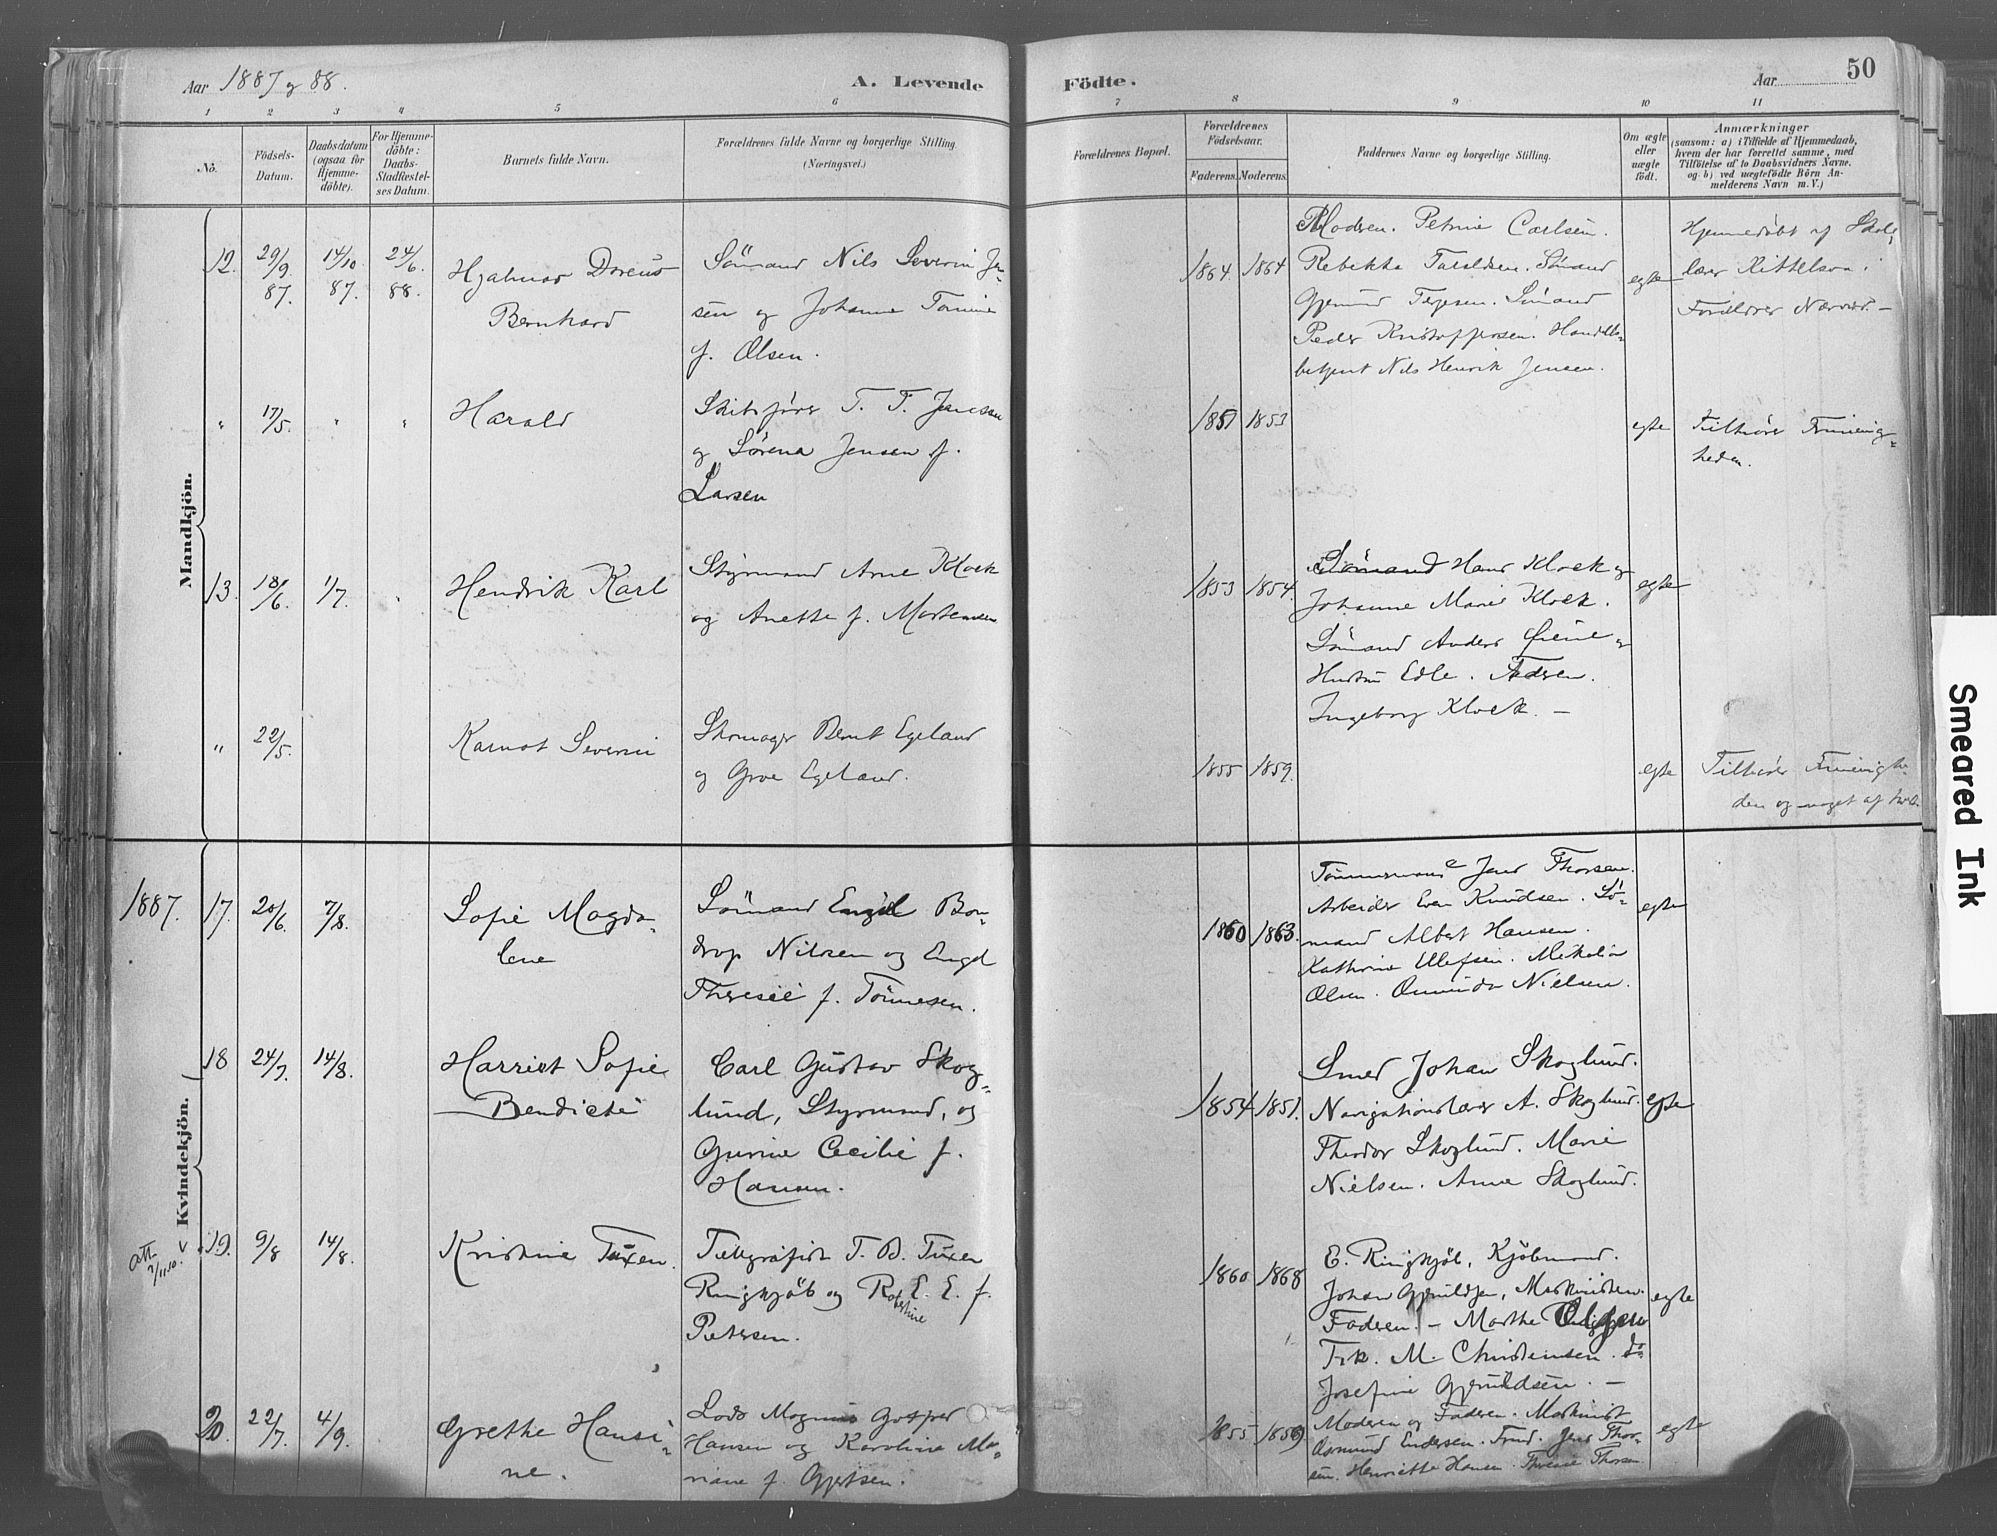 Aar 1887 og 88.
A. Levende
Födte.
Aar
50
1 2 3 4 5 6 7 8 9 10 11
No.
Födsels-
Datum.
Daabsdatum
(ogsaa for
Hjemme-
döbte).
For Hjemme-
döbte:
Daabs-
Stadfestel-
ses Datum.
Barnets fulde Navn.
Forældrenes fulde Navne og borgerlige Stilling.
(Næringsvei.)
Forældrenes Bopæl.
Forældrenes
Födselsaar.
Faderens.
Moderens.
Faddernes Navne og borgerlige Stilling.
Om ægte
eller
uægte
født.
Anmærkninger
(saasom: a) i Tilfælde af Hjemmedaab,
hvem der har forrettet samme, med
Tilföielse af to Daabsvidners Navne.
og b) ved uægtefödte Börn An-
melderens Navn m. V.)
Mandkjön.
12.
29/9.
87.
14/10
87.
24/6.
88.
Hjalmar
Bernhard
Sömand Nils Severin Jen-
sen og Johanne
f. Olsen.
1864. 1864
Moderen. Petrine Carlsen.
Rebekka Sömand
Gjermund Terjesen. Sömand
Peder Kristoffersen. Handels-
betjent Nils Henrik Jensen.
egte
Hjemmedöbt af Skole-
lærer Kittelson i
Forældres Nærvær. –
"
17/5.
"
"
Harald
Skibsförer T. T. Jensen
og Sörena Jensen f.
Larsen
1851 1853
egte
Tilhörer Frimenig-
heden.
13.
18/6.
1/7.
Hendrik Karl
Styrmand Arne Klock
og Anette f. Mortensen
1853 1854.
Sömand Hans Klock og
Johanne Marie Klock.
Sömand Anders og
Hustru Edle. Faderen.
Ingeborg Klock. –
egte
"
22/5.
Severin
Skomager Bernt Egeland
og Egeland.
1855 1859.
egte
Tilhörer Frimenighe-
den og noget af
Kvindekjön.
1887.
17.
20/6.
7/8.
Sofie Magda-
lene
Sömand Engel Bon-
drop Nilsen og Engel
Theresie f. Tönnesen.
1860 1863.
Tömmermand Jens Thorsen.
Arbeider Even Knudsen. Sö-
mand Albert Hansen.
Kathrine Ellefsen.
Olsen. Nielsen.
egte
18
24/7.
14/8.
Harriet Sofie
Bendicte
Carl Gustav Skog-
lund, Styrmand, og
Gurine Cecilie f.
Hansen.
1854 1851.
Smed Johan Skoglund.
Navigationslærer A. Skoglund.
Theodor Skoglund. Marie
Nielsen. Anne Skoglund.
egte
att.
2/11.10.
v
19.
9/8
14/8.
Kristine Tuxen.
Telegrafist T. B. Tuxen
Ringkjöb og E. E. f.
Petersen.
1860 1868
E. Ringkjöb, Kjöbmand.
Johan Gjeruldsen,
Faderen. – Marthe
Frk. M. Christensen. do
Josefine Gjeruldsen. –
egte
20.
22/7.
4/9.
Grethe Hansi-
ne.
Lods Magnus Gotfred
Hansen og Karoline Ma-
riane f. Gjertsen.
1855 1859
Moderen og Faderen. Maskinist
Osmund Endersen. Jens Thor-
sen. Henriette Hansen. Therese Thorsen
egte
Smeared Ink